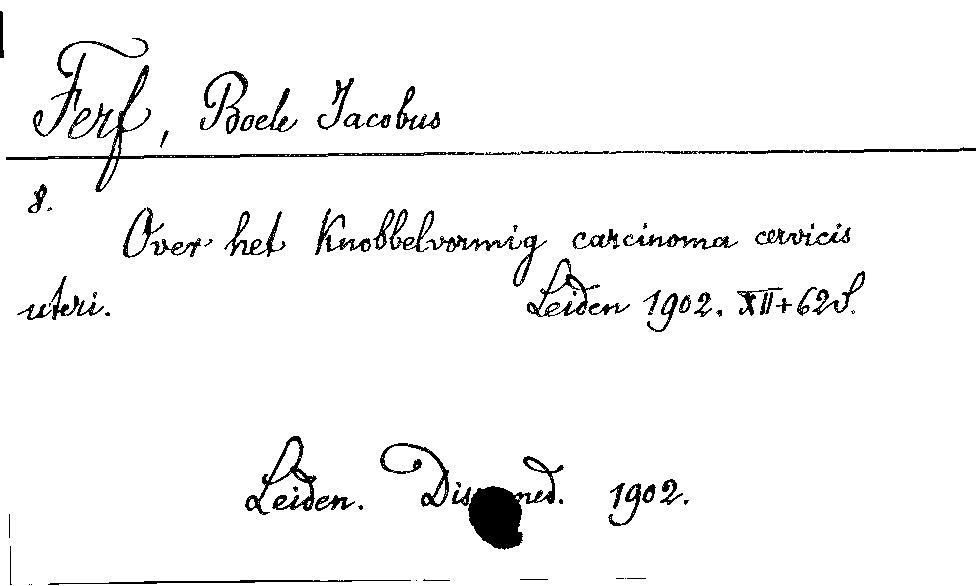 Ferf, Boele Jacobus
8.
Over het Knobbelvormig carcinoma cervicis
uteri. Leiden 1902. XII+62S.
Leiden. Diss. med. 1902.